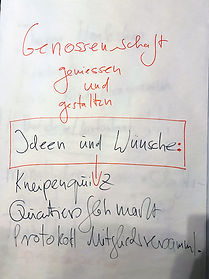 Genossenschaft
geniessen
und
gestalten
Ideen und Wünsche:
Kneipenquizz
Quartiersflohmarkt
Protokoll Mitgliedsversamml.